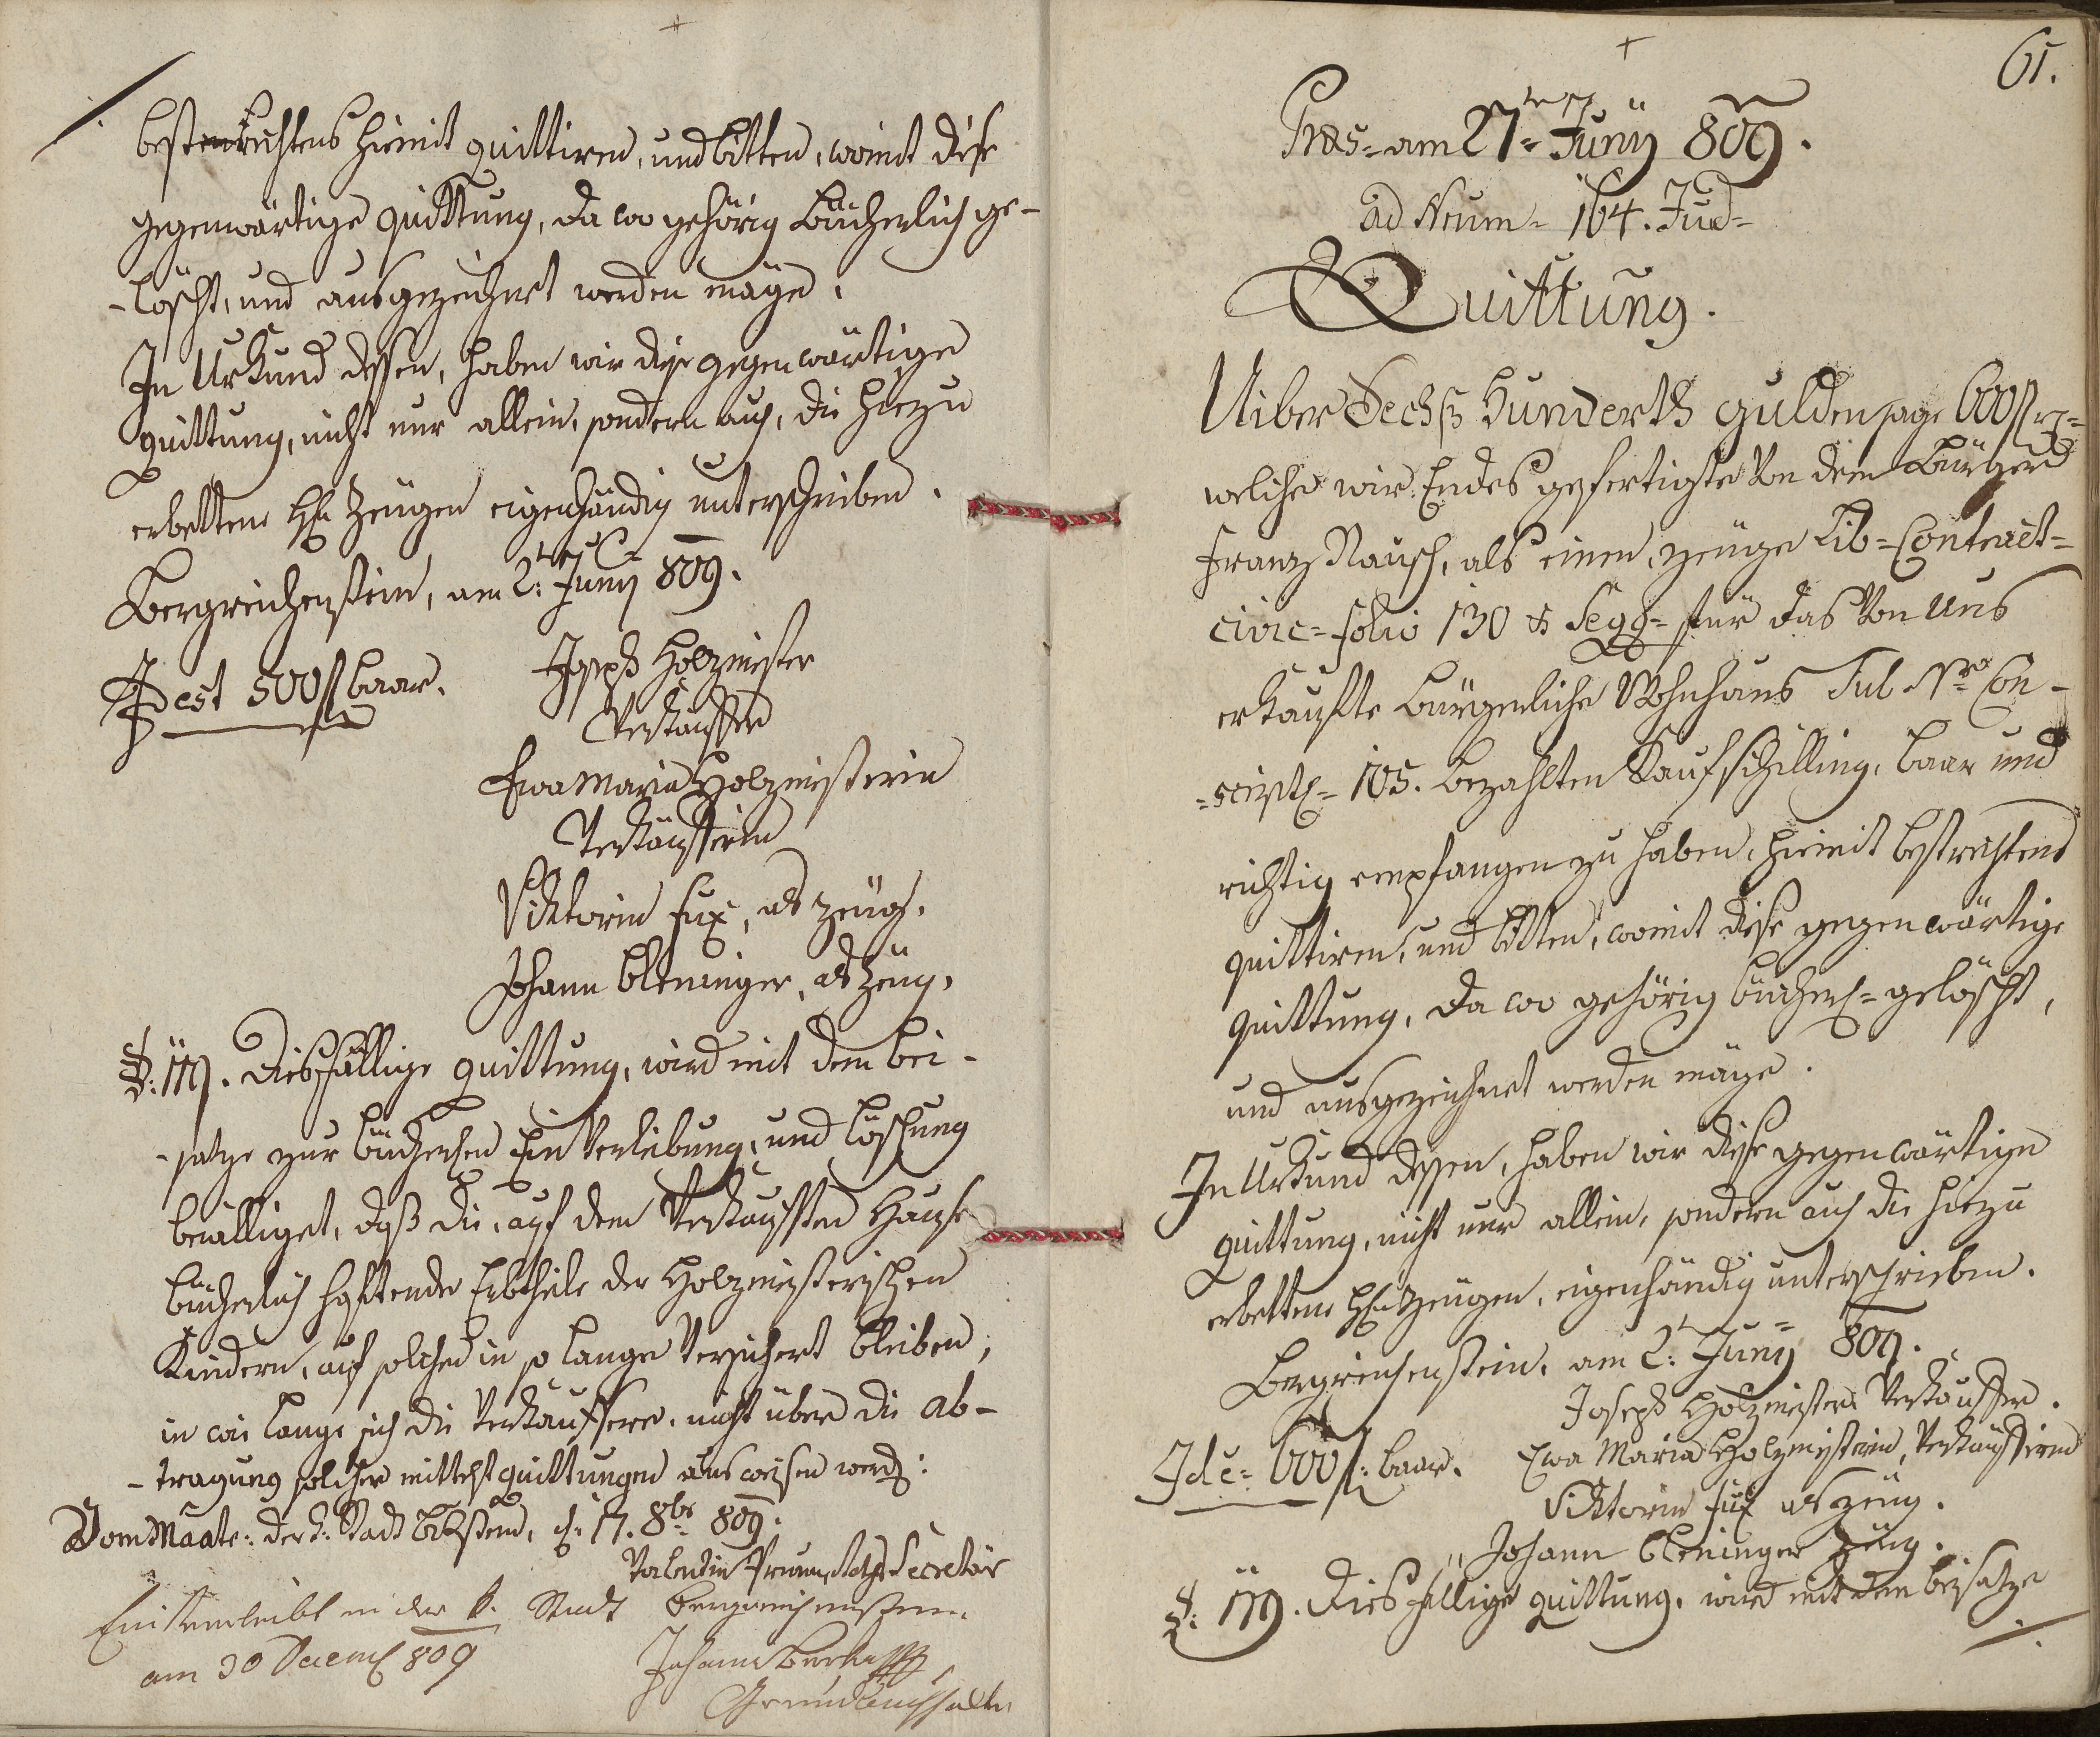 bestenrechtens hiemit quittiren, und bitten, womit diese
gegenwärtige quittung, da wo gehörig Bücherlich ge-
-löscht, und ausgezeichnet werden möge.
In Urkund dessen, haben wir diese gegenwärtige
quittung, nicht nur allein, sondern auch, die hiezu
erbettene H. Zeugen eigenhändig unterschrieben.
Bergreichenstein, am 2: Juny 809.
Id est 500 f baar.
Joseph Holzmeister
Verkäuffer
Ewa Maria Holzmeisterin
Verkäufferin
Viktorin Fux, als Zeug.
Johann Bleninger, als Zeug.
Diesfällige quittung, wird mit dem bei-
-satze zur bücherlichen Einverleibung, und Löschung
bewilliget, daß die, auf dem verkauften Hause
bücherlich haftende Erbtheile der Holzmeisterischen
Kindern, auf solchen in so lange versichert bleiben,
in wie lange sich die Verkäuffere, nicht über die Ab-
-tragung solcher mittelst quittungen ausweisen werd:
Vom Maate: der k: Stadt 17. 8br 809.
Valentin Secretär
Einverleibt in der k. Stadt Bergreichenstein
am 30 Decemb 809
Johann
Grundbuchhalter
61.
Præs= am 27= Juny 809.
ad Num= 164. Jud=
Quittung.
Uiber Sechß Hunderth gulden sage 600 f
welche wir Endes gefertigte von dem Bürger
Franz Rausch, als einen, zeuge Lib=Contract=
civic= folio 130 & Segg= für das von uns
erkaufte Bürgerliche Wohnhaus Sub Nro Con-
=script= 105. bezahlten Kaufschilling, baar und
richtig empfangen zu haben, hiemit bestrechtens
quittiren, und bitten, womit diese gegenwärtige
quittung, da wo gehörig bücherl= gelöscht,
und ausgezeichnet werden möge.
In Urkund dessen, haben wir diese gegenwärtige
quittung, nicht nur allein, sondern auch die hiezu
erbettene H. Zeugen, eigenhändig unterschrieben.
Bergreichenstein, am 2: Juny 809.
Joseph Holzmeister Verkäuffer.
Id e= 600 f: baar.
Ewa Maria Holzmeisterin, Verkäufferin
Viktorin Fux als zeug.
Johann Bleninger Zeug.
Diesfällige quittung, wird mit dem beisatze